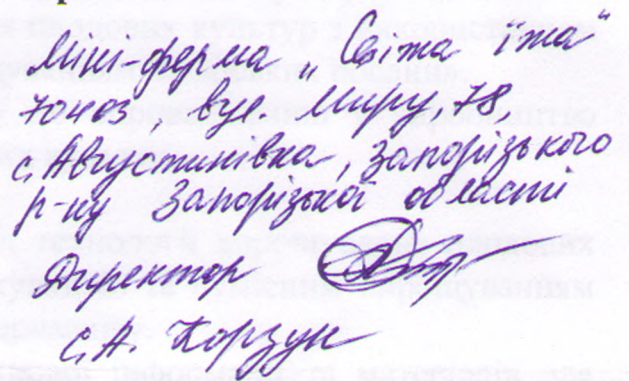 Міні-ферма „Свіжа їжа"
70403, вул. Миру, 78,
с. Августинівка, Запорізького
р-ну Запорізької області
Директор
С.А. Корзун